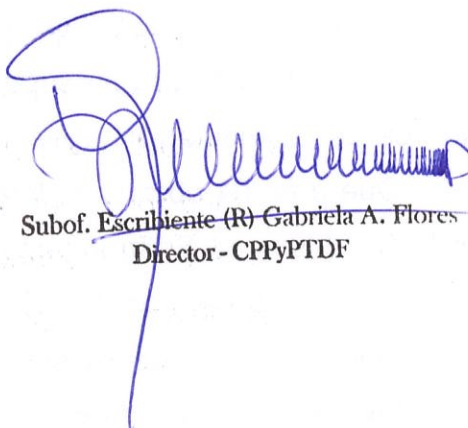 Subof. Escribiente (R) Gabriela A. Flores
Director - CPPyPTDF